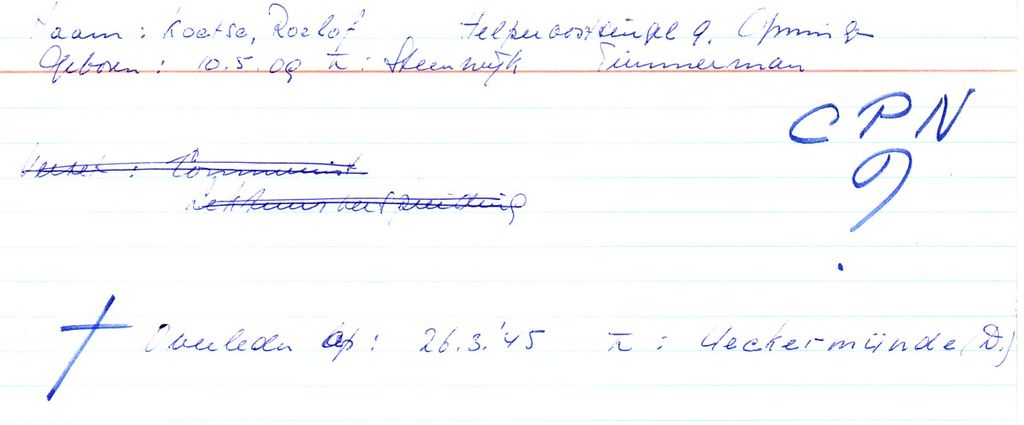 Naam: Koetse, Roelof Helper oostsingel 9. Groningen
Geboren: 10.5.09 te: Steenwijk Timmerman
CPN
?
Verzet: Communist
Lektuurverspreiding
† Overleden op: 26.3.'45 te: Ueckermünde (D.)